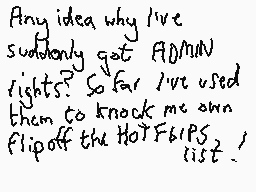 Any idea why I've
suddenly got ADMIN
rights? So far I've used
them to knock me own
flip off the HOT FLIPS
list!